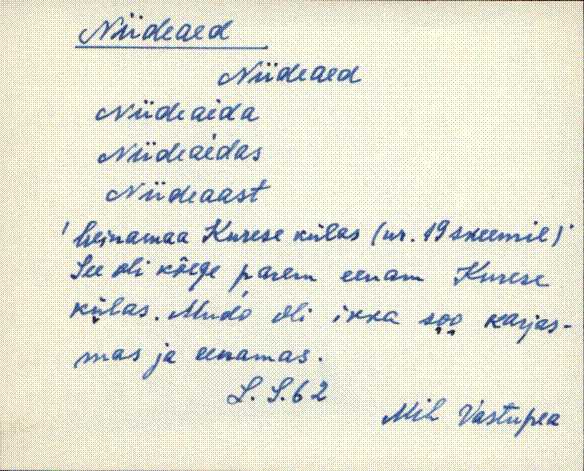 Niideaed
Niideaed
Niideaida
Niideaidas
Niideaast
'heinamaa Kurese külas (nr. 19 skeemil)'
See oli kõege parem eenam Kurese
külas. Mudo oli ikka soo karjas-
mas ja eenamas.
L. S. 62
Mih Vastupea